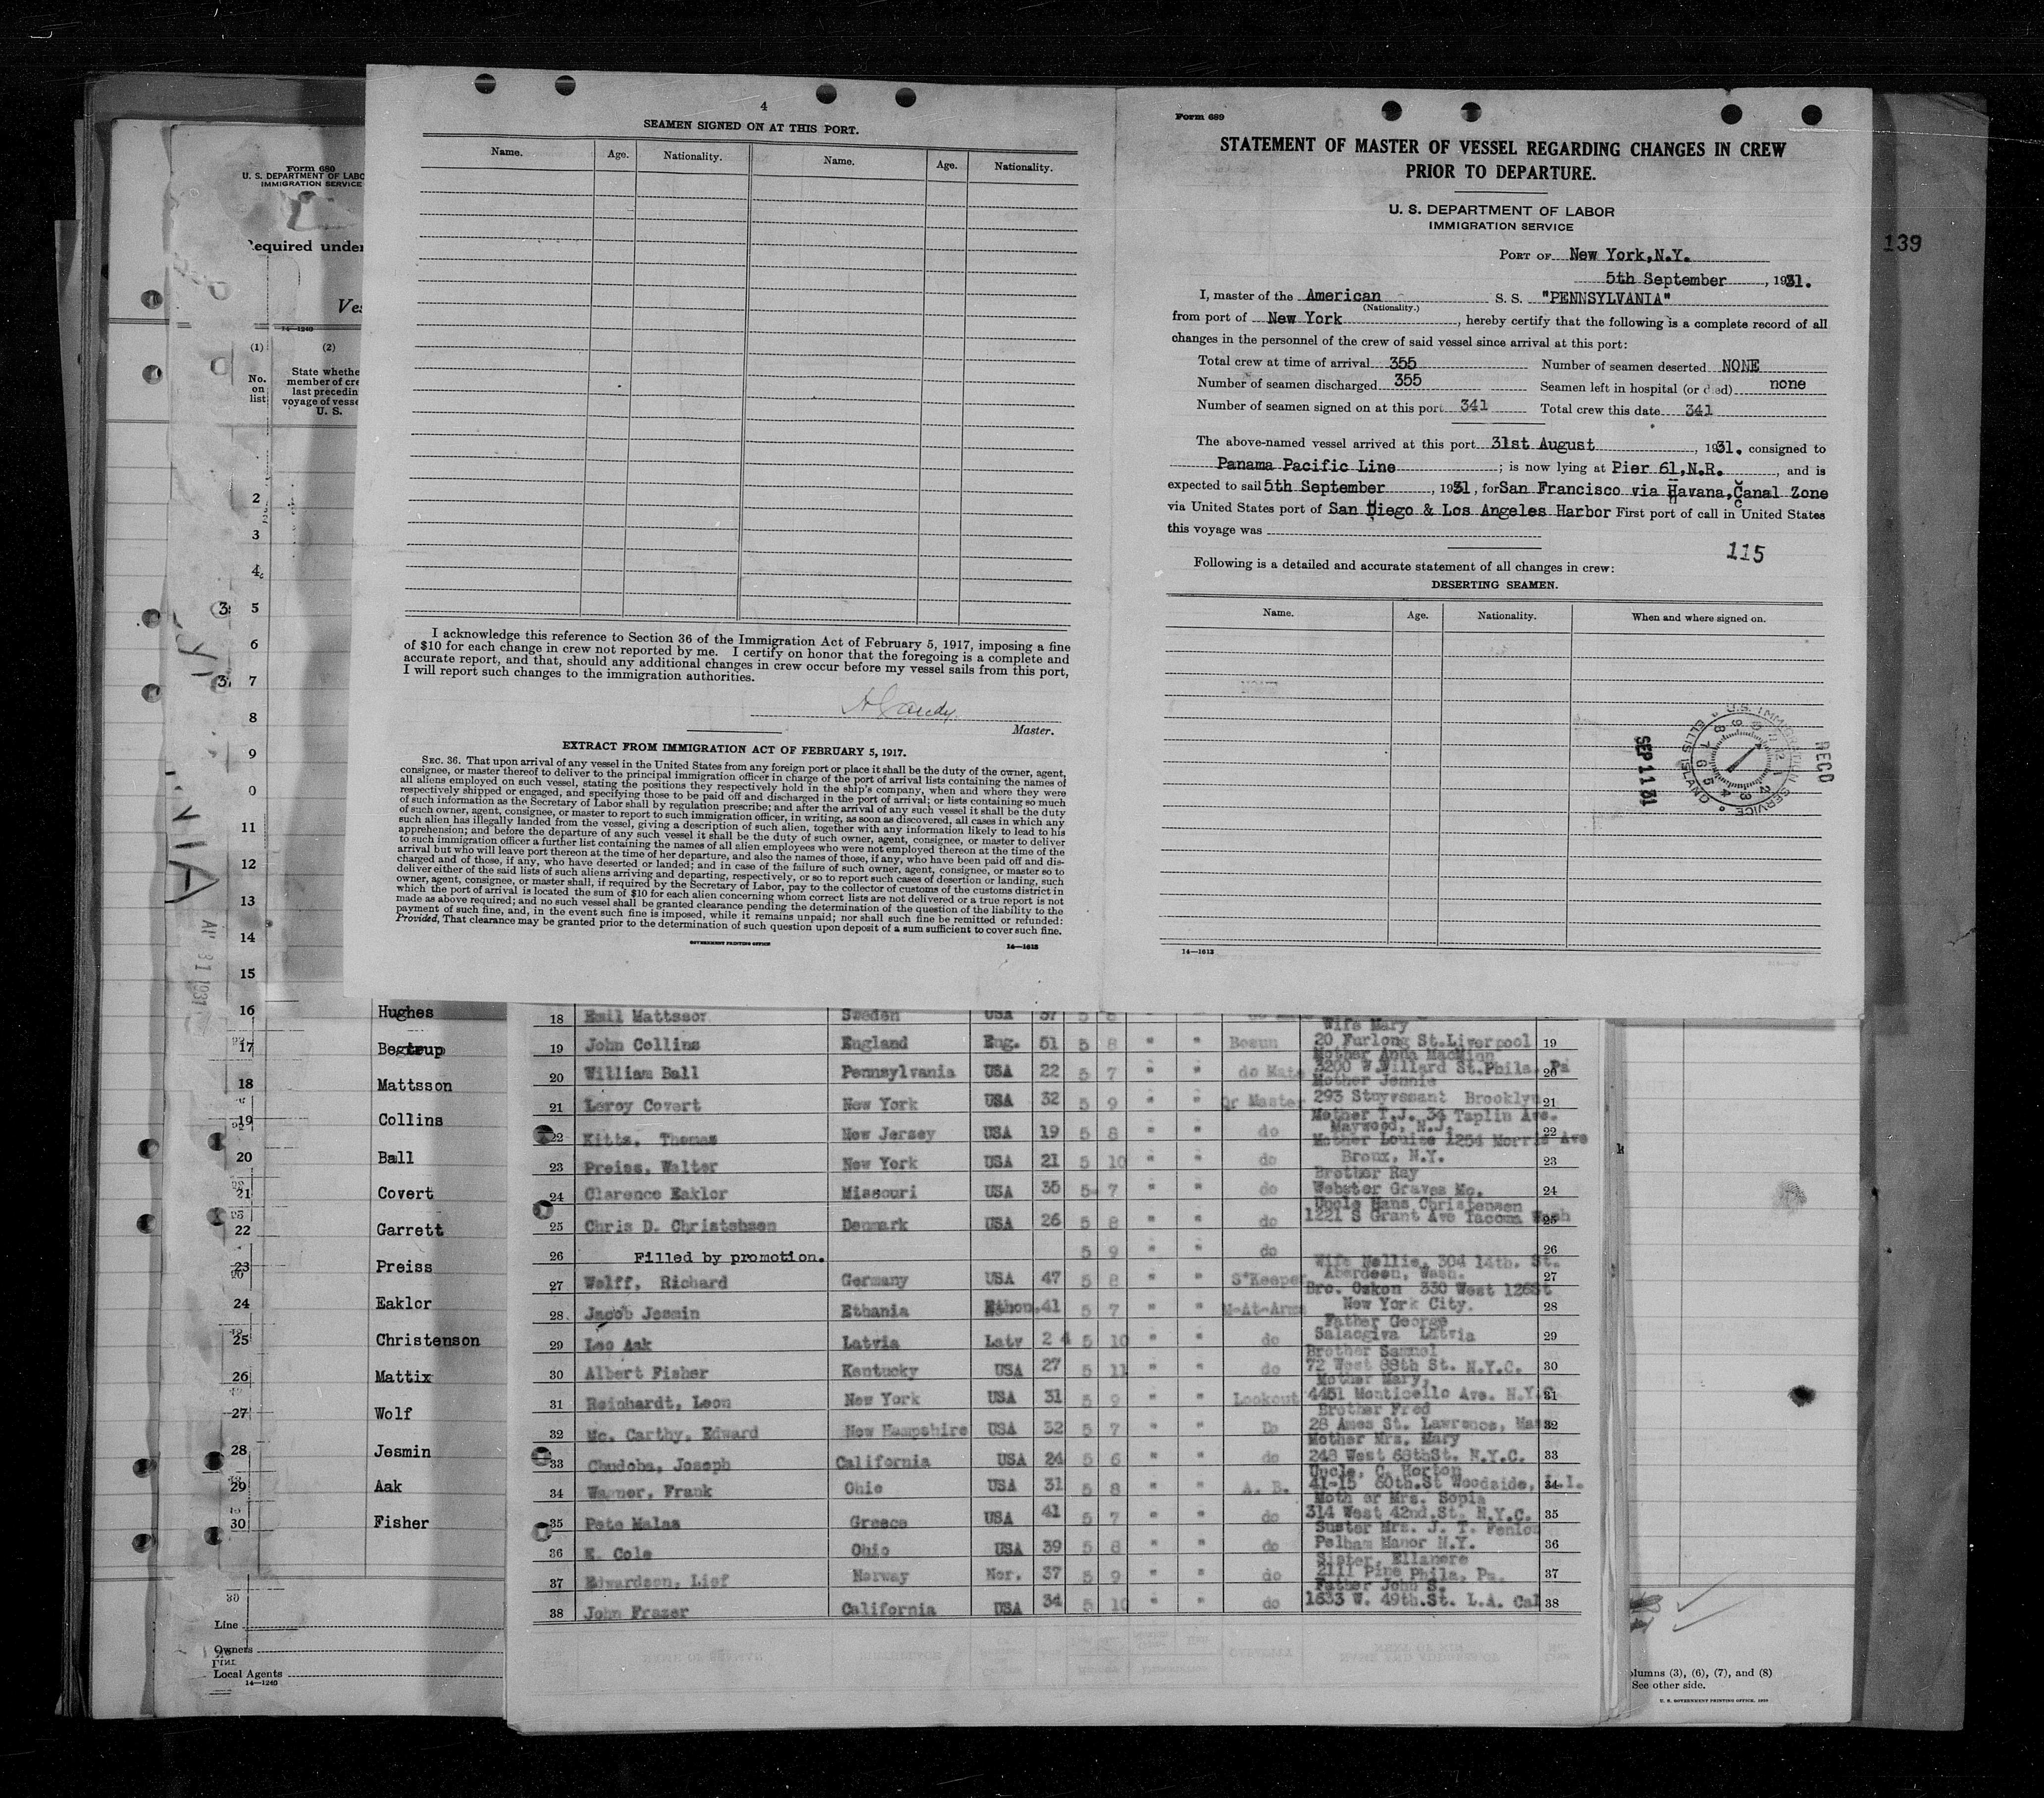 4
SEAMEN SIGNED ON AT THIS PORT.
Name. Age. Nationality. Name. Age. Nationality.
I acknowledge this reference to Section 36 of the Immigration Act of February 5, 1917, imposing a fine
of $10 for each change in crew not reported by me. I certify on honor that the foregoing is a complete and
accurate report, and that, should any additional changes in crew occur before my vessel sails from this port,
I will report such changes to the immigration authorities.
Master.
EXTRACT FROM IMMIGRATION ACT OF FEBRUARY 5, 1917.
SEC. 36. That upon arrival of any vessel in the United States from any foreign port or place it shall be the duty of the owner, agent,
consignee, or master thereof to deliver to the principal immigration officer in charge of the port of arrival lists containing the names of
all aliens employed on such vessel, stating the positions they respectively hold in the ship's company, when and where they were
respectively shipped or engaged, and specifying those to be paid off and discharged in the port of arrival; or lists containing so much
of such information as the Secretary of Labor shall by regulation prescribe; and after the arrival of any such vessel it shall be the duty
of such owner, agent, consignee, or master to report to such immigration officer, in writing, as soon as discovered, all cases in which any
such alien has illegally landed from the vessel, giving a description of such alien, together with any information likely to lead to his
apprehension; and before the departure of any such vessel it shall be the duty of such owner, agent, consignee, or master to deliver
to such immigration officer a further list containing the names of all alien employees who were not employed thereon at the time of the
arrival but who will leave port thereon at the time of her departure, and also the names of those, if any, who have been paid off and dis-
charged and of those, if any, who have deserted or landed; and in case of the failure of such owner, agent, consignee, or master so to
deliver either of the said lists of such aliens arriving and departing, respectively, or so to report such cases of desertion or landing, such
owner, agent, consignee, or master shall, if required by the Secretary of Labor, pay to the collector of customs of the customs district in
which the port of arrival is located the sum of $10 for each alien concerning whom correct lists are not delivered or a true report is not
made as above required; and no such vessel shall be granted clearance pending the determination of the question of the liability to the
payment of such fine, and, in the event such fine is imposed, while it remains unpaid; nor shall such fine be remitted or refunded:
Provided, That clearance may be granted prior to the determination of such question upon deposit of a sum sufficient to cover such fine.
GOVERNMENT PRINTING OFFICE 14—1613
Form 689
STATEMENT OF MASTER OF VESSEL REGARDING CHANGES IN CREW
PRIOR TO DEPARTURE.
U. S. DEPARTMENT OF LABOR
IMMIGRATION SERVICE
PORT OF New York,N.Y.
5th September, 1931.
I, master of the American S. S. "PENNSYLVANIA"
(Nationality.)
from port of New York, hereby certify that the following is a complete record of all
changes in the personnel of the crew of said vessel since arrival at this port:
Total crew at time of arrival 355 Number of seamen deserted NONE
Number of seamen discharged 355 Seamen left in hospital (or died) none
Number of seamen signed on at this port 341 Total crew this date 341
The above-named vessel arrived at this port 31st August, 1931. consigned to
Panama Pacific Line; is now lying at Pier 61,N.R., and is
expected to sail 5th September, 1931, for San Francisco via Havana, Canal Zone
via United States port of San Diego & Los Angeles Harbor First port of call in United States
this voyage was
115
Following is a detailed and accurate statement of all changes in crew:
DESERTING SEAMEN.
Name. Age. Nationality. When and where signed on.
RECD
U.S. IMMIGRATION SERVICE ELLIS ISLAND
SEP 11 31
14—1613
139
Form 680
U. S. DEPARTMENT OF LABO
IMMIGRATION SERVICE
Required under
Ves
14—1240
(1) (2)
No. on list
State whethe
member of cre
last precedin
voyage of vesse
U. S.
2
3
4
5
6
7
8
9
0
11
12
13
14
15
16 Hughes
17 Begtrup
18 Mattsson
19 Collins
20 Ball
21 Covert
22 Garrett
23 Preiss
24 Eaklor
25 Christenson
26 Mattix
27 Wolf
28 Jesmin
29 Aak
30 Fisher
30
Line
Owners
Local Agents
14—1240
18 Emil Mattsson Sweden USA 37 5 8
Wife Mary
19 John Collins England Eng. 51 5 8 " " Bosun 20 Furlong St.Liverpool 19
Mother Anna MacMinn
20 William Ball Pennsylvania USA 22 5 7 " " do Mate 3200 W.Willard St.Phila. Pa 20
Mother Jennie
21 Leroy Covert New York USA 32 5 9 " " Qr Master 293 Stuyvesant Brooklyn 21
Mother T.J. 34 Taplin Ave.
22 Kitts, Thomas New Jersey USA 19 5 8 " " do Maywood, N.J. 22
Mother Louise 1254 Morris Ave
23 Preiss, Walter New York USA 21 5 10 " " do Bronx, N.Y. 23
Brother Ray
24 Clarence Eaklor Missouri USA 35 5 7 " " do Webster Graves Mo. 24
Uncle Hans Christensen
25 Chris D. Christensen Denmark USA 26 5 8 " " do 1221 S Grant Ave Tacoma Wash 25
26 Filled by promotion. 5 9 " " do 26
Wife Nellie, 304 14th. St.
27 Wolff, Richard Germany USA 47 5 8 " " StKeeper Aberdeen, Wash. 27
Bro. Oskon 330 West 126St
28 Jacob Jesmin Ethania Ethon. 41 5 7 " " M-At-Arms New York City. 28
Father George
29 Leo Aak Latvia Latv 24 5 10 " " do Salacgiva Latvia 29
Brother Samuel
30 Albert Fisher Kentucky USA 27 5 11 " " do 72 West 88th St. N.Y.C. 30
Mother Mary,
31 Reinhardt, Leon New York USA 31 5 9 " " Lookout 4451 Monticello Ave. N.Y.C. 31
Brother Fred
32 Mc. Carthy, Edward New Hampshire USA 32 5 7 " " Do 28 Ames St. Lawrence, Mass 32
Mother Mrs. Mary
33 Chudoba, Joseph California USA 24 5 6 " " do 248 West 68thSt. N.Y.C. 33
Uncle, C. Horton
34 Wagner, Frank Ohio USA 31 5 8 " " A. B. 41-15 60th.St Woodside, L.I. 34
Moth er Mrs. Sopia
35 Pete Malas Greece USA 41 5 7 " " do 314 West 42nd.St. N.Y.C. 35
Suster Mrs. J. T. Fenlon
36 E. Cole Ohio USA 39 5 8 " " do Pelham Manor N.Y. 36
Sister, Ellanore
37 Edwardsen, Lief Norway Nor. 37 5 9 " " do 2111 Pine Phila, Pa. 37
Father John S.
38 John Frazer California USA 34 5 10 " " do 1633 W. 49th.St. L.A. Cal 38
olumns (3), (6), (7), and (8)
See other side.
U. S. GOVERNMENT PRINTING OFFICE